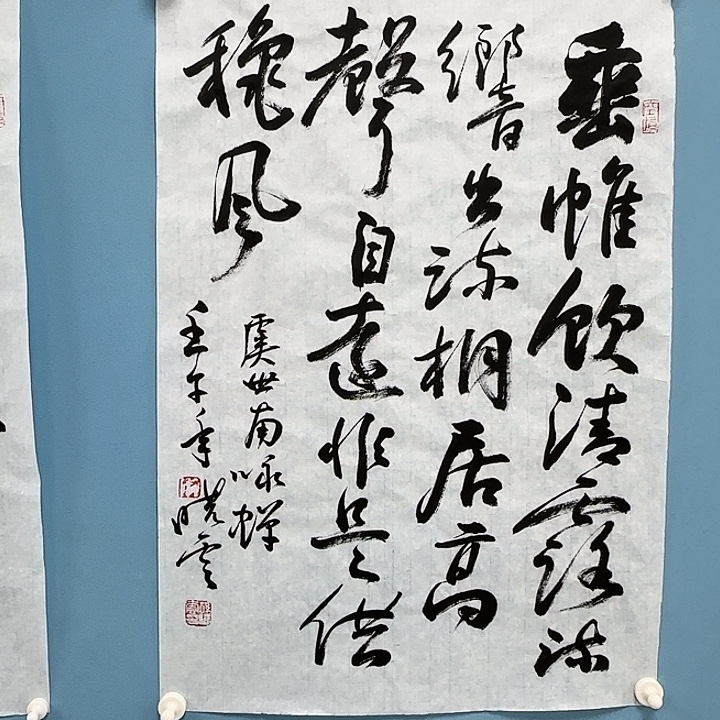 垂帷飲清露流
響出疎桐居高
聲自遠惟是供
穐風
虞世南咏蝉
壬午年 晓雲